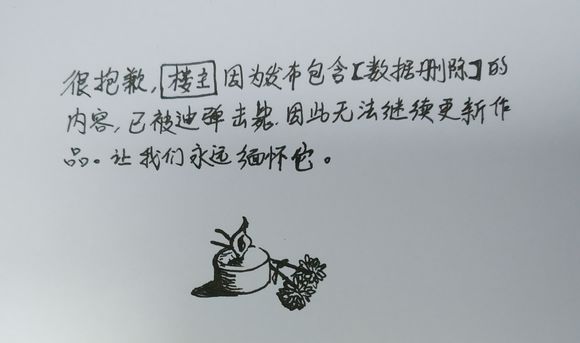 很抱歉，楼主因为发布包含【数据删除】的
内容，已被迪弹击毙.因此无法继续更新作
品。让我们永远缅怀它。